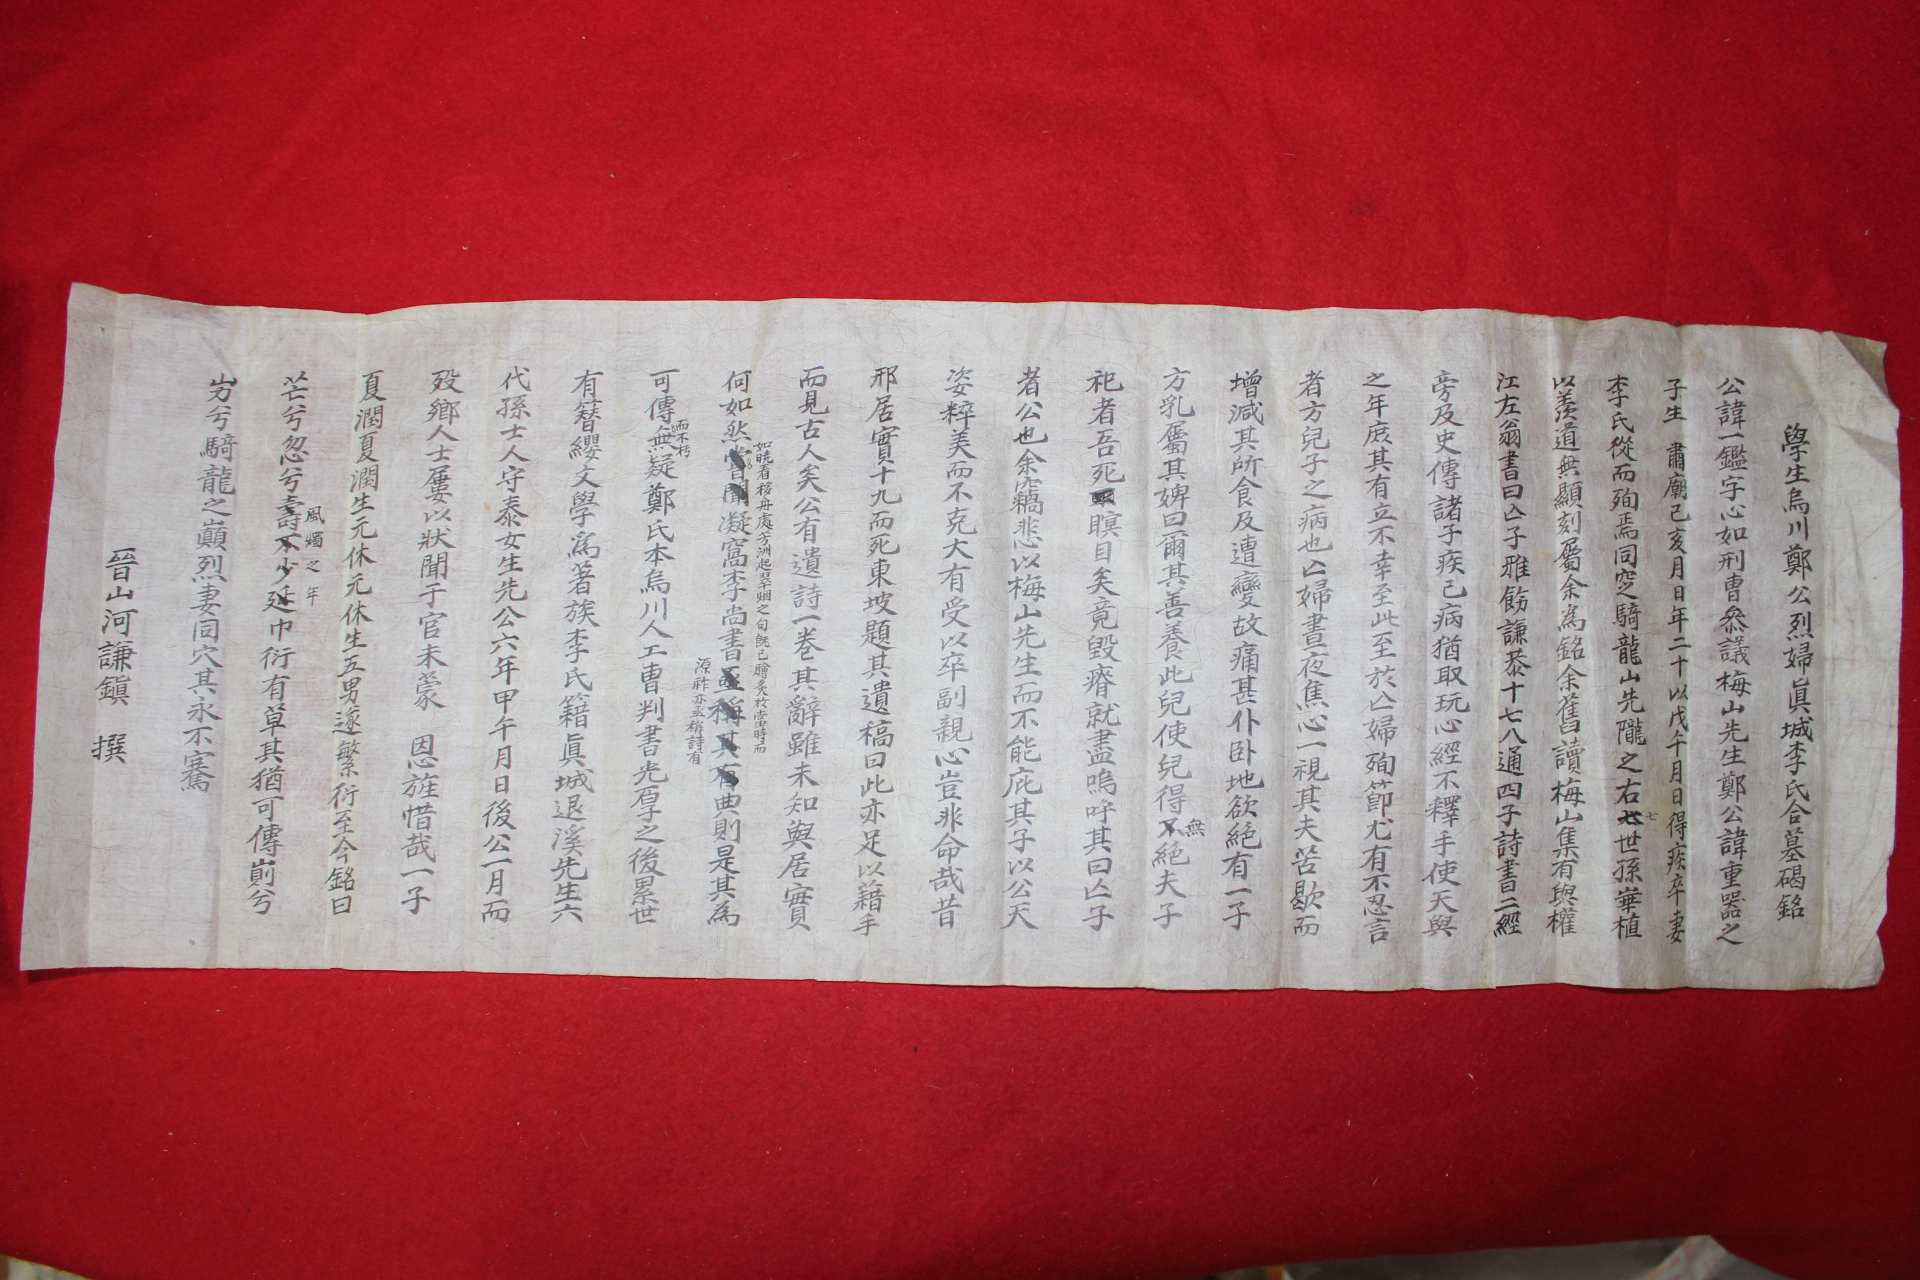 學生烏川鄭公烈婦眞城李氏合墓碣銘
公諱一鑑字心如刑曹參議梅山先生鄭公諱重器之
子生 肅廟己亥月日年二十以戊午月日得疾卒妻
李氏從而殉焉同窆騎龍山先隴之右七世孫華植
七
以羨道無顯刻屬余爲銘余舊讀梅山集有與權
江左翁書曰亾子雅飭謙恭十七八通四子詩書二經
旁及史傳諸子疾已病猶取玩心經不釋手使天與
之年庶其有立不幸至此至於亾婦殉節尤有不忍言
者方兒子之病也亾婦晝夜焦心一視其夫苦歇而
增減其所食及遭變故痛甚仆卧地欲絶有一子
方乳屬其婢曰爾其善養此兒使兒得不絶夫子
無
祀者吾死瞑目矣竟毀瘠就盡嗚呼其曰亾子
者公也余竊悲以梅山先生而不能庇其子以公天
姿粹美而不克大有受以卒副親心豈非命哉昔
邢居實十九而死東坡題其遺稿曰此亦足以藉手
而見古人矣公有遺詩一卷其辭雖未知與居實
如晩看移舟處芳洲起翠烟之句旣已膾炙於當時而
何如然嘗聞凝窩李尚書亟稱其有典則是其為
源祚亦亟稱詩有
而不朽
可傳無疑鄭氏本烏川人工曹判書光厚之後累世
有簪纓文學爲著族李氏籍眞城退溪先生六
代孫士人守泰女生先公六年甲午月日後公一月而
歿鄉人士屢以狀聞于官未蒙 恩旌惜哉一子
夏潤夏潤生元休元休生五男遂繁衍至今銘曰
風燭之年
芒兮忽兮壽不少延巾衍有草其猶可傳崱兮
屴兮騎龍之巔烈妻同穴其永不騫
晉山河謙鎭 撰